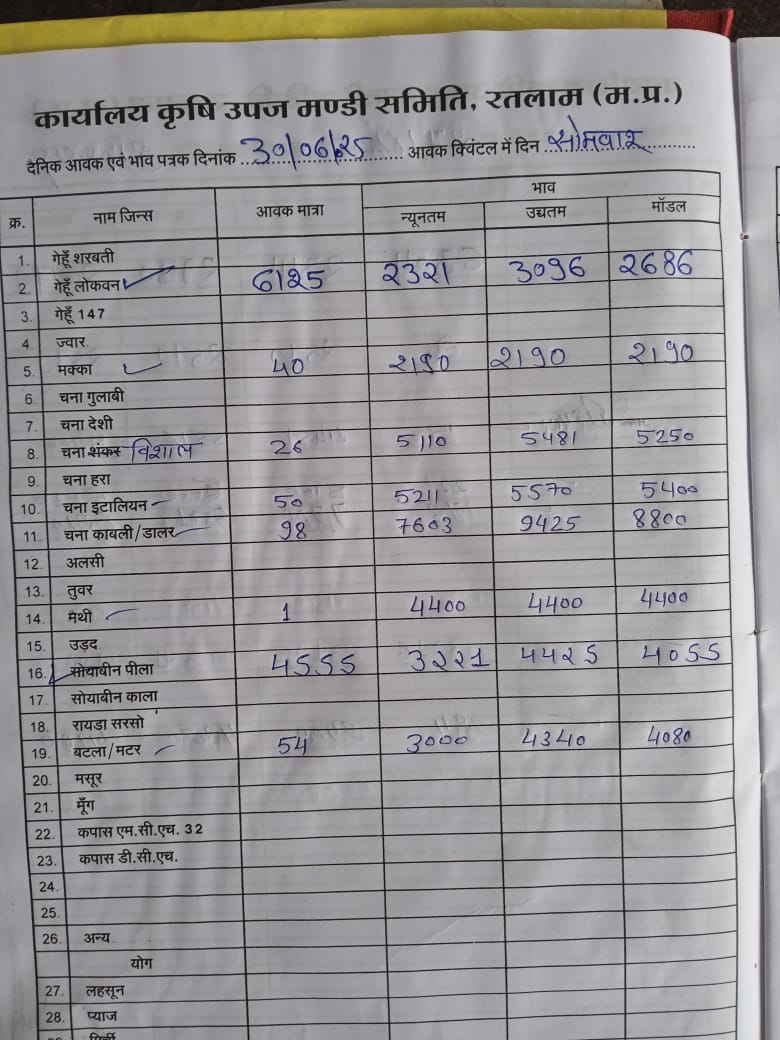 कार्यालय कृषि उपज मण्डी समिति, रतलाम (म.प्र.)
दैनिक आवक एवं भाव पत्रक दिनांक 30/06/25 आवक क्विंटल में दिन सोमवार
क्र. नाम जिन्स आवक मात्रा भाव
न्यूनतम उच्चतम मॉडल
1. गेहूँ शरबती
2. गेहूँ लोकवन 6125 2321 3096 2686
3. गेहूँ 147
4. ज्वार
5. मक्का 40 2190 2190 2190
6. चना गुलाबी
7. चना देशी
8. चना शंकर विशाल 26 5110 5481 5250
9. चना हरा
10. चना इटालियन 50 5211 5570 5400
11. चना काबली/डालर 98 7603 9425 8800
12. अलसी
13. तुवर
14. मैथी 1 4400 4400 4400
15. उड़द
16. सोयाबीन पीला 4555 3221 4425 4055
17. सोयाबीन काला
18. रायडा सरसो
19. बटला/मटर 54 3000 4340 4080
20. मसूर
21. मूँग
22. कपास एम.सी.एच. 32
23. कपास डी.सी.एच.
24.
25.
26. अन्य
योग
27. लहसून
28. प्याज